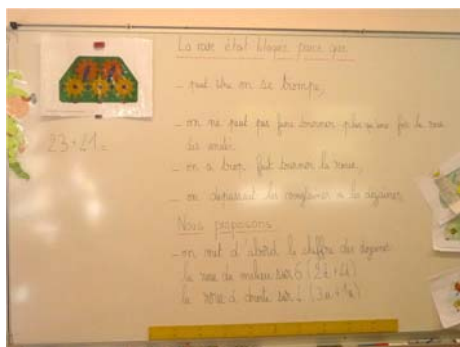 La roue était bloquée parce que
- peut être on se trompe,
- on ne peut pas faire tourner plus qu'une fois la roue
des unités.
- on a trop fait tourner la roue.
- on dépassait les
23+21=
Nous proposons
- on met d'abord le chiffre des dizaines
la roue du milieu sur 6 (2d+4d)
la roue à droite sur 4 (3u+1u)